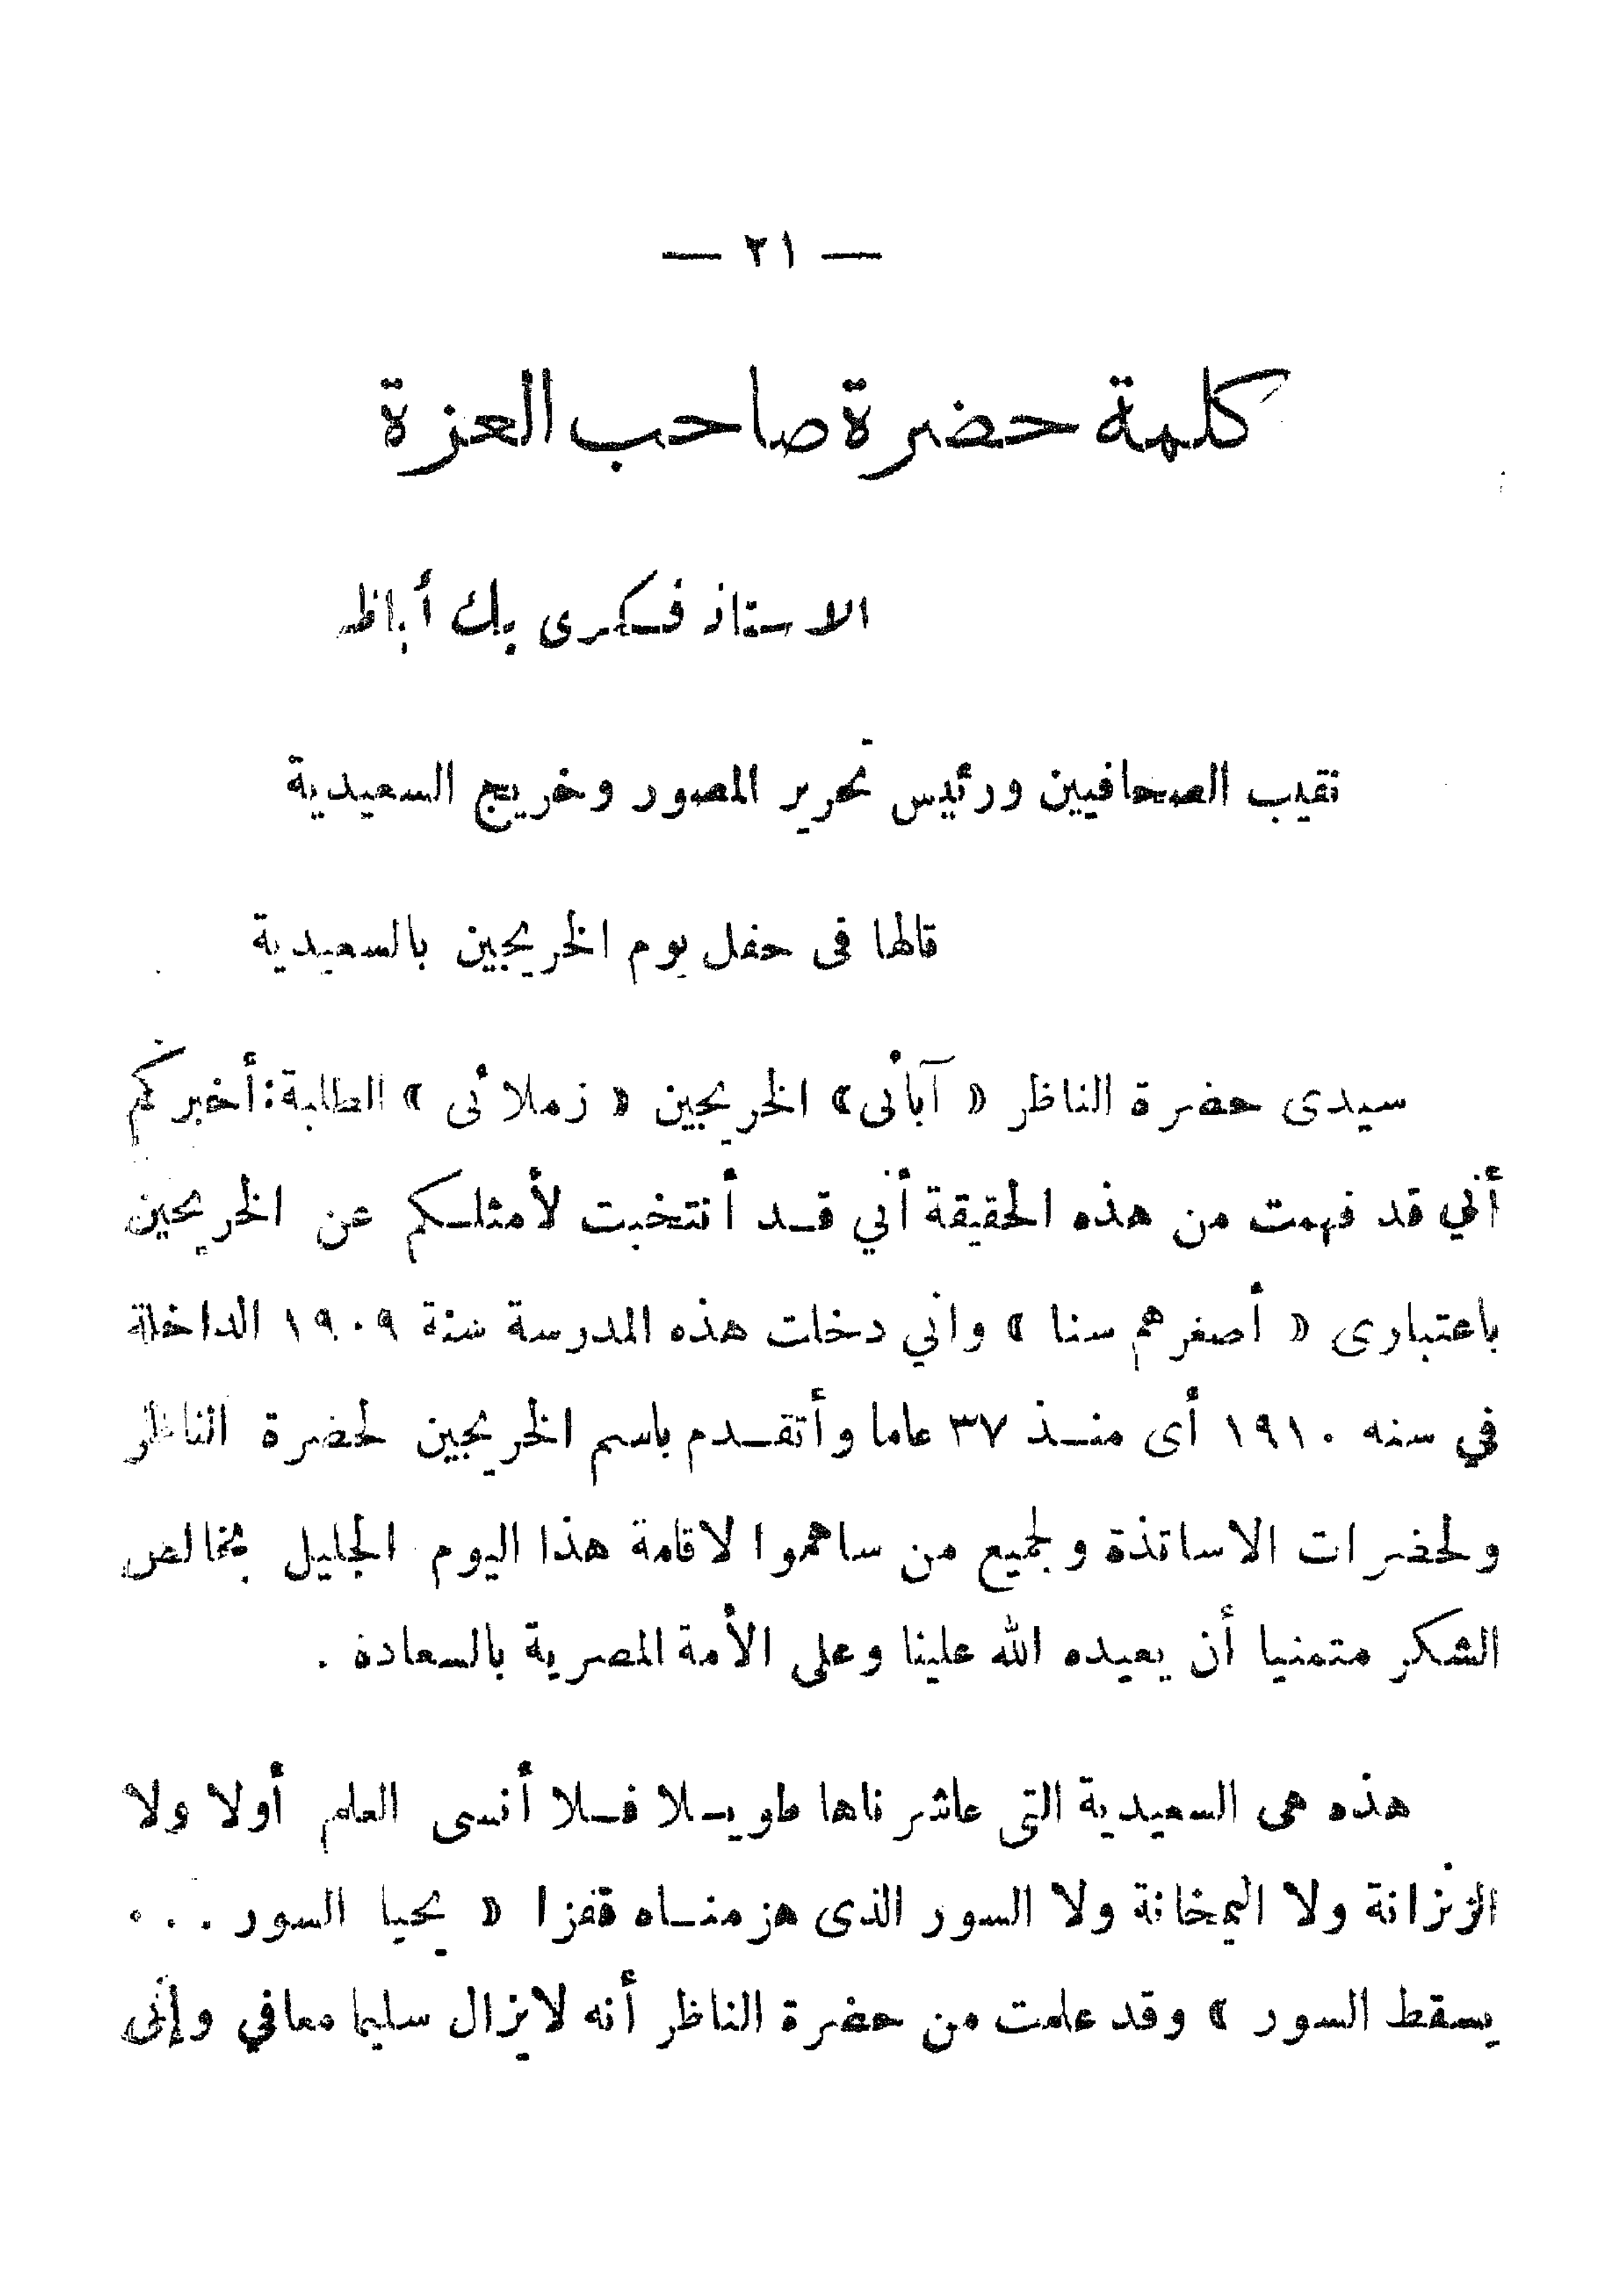 — ٢١ —
كلمة حضرة صاحب العزة
الاستاذ فكرى بك أباظه
نقيب الصحافيين ورئيس تحرير المصور وخريج السعيدية
قالها فى حفل يوم الخريجين بالسعيدية
سيدى حضرة الناظر « آبائى » الخريجين « زملائى » الطلبة : أخبركم
أني قد فهمت من هذه الحقيقة أني قد أنتخبت لأمثلكم عن الخريجين
باعتبارى « أصغرهم سنا » واني دخلت هذه المدرسة سنة ١٩٠٩ الداخلة
في سنه ١٩١٠ أى منذ ٣٧ عاما وأتقدم باسم الخريجين لحضرة الناظر
ولحضرات الاساتذة ولجميع من ساهموا لاقامة هذا اليوم الجليل بخالص
الشكر متمنيا أن يعيده الله علينا وعلى الأمة المصرية بالسعادة .
هذه هى السعيدية التى عاشرناها طويلا فلا أنسى العلم أولا ولا
الزنزانة ولا اليمخانة ولا السور الذى هزمناه قفزا « يحيا السور . . .
يسقط السور » وقد علمت من حضرة الناظر أنه لايزال سليما معافي وإنى